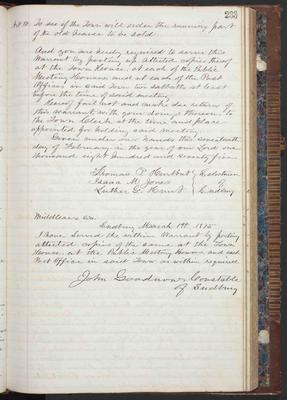 203
Art. 10. To see if the Town will order the running part
of the old hearse to be sold.
And you are hereby required to serve this
Warrant by posting up attested copies thereof
at the Town House, at each of the Public
Meeting Houses and at each of the Post
Offices in said Town two sabbaths at least
before the time of said meeting.
Hereof fail not and make due return of
this warrant with your doings thereon, to
the Town Clerk at the time and place
appointed for holding said meeting.
Given under our hands this
day of February in the year of our Lord one
thousand eight hundred and seventy five.
Thomas P. Hurlbut } Selectmen
Isaac M. Jones } of
Luther G. Hunt } Sudbury
Middlesex ss.
Sudbury March 1st 1875
I have served the within Warrant by posting
attested copies of the same at the Town
House, at the Public Meeting Houses and each
Post Office in said Town as within required
John Goodnow Constable
of Sudbury